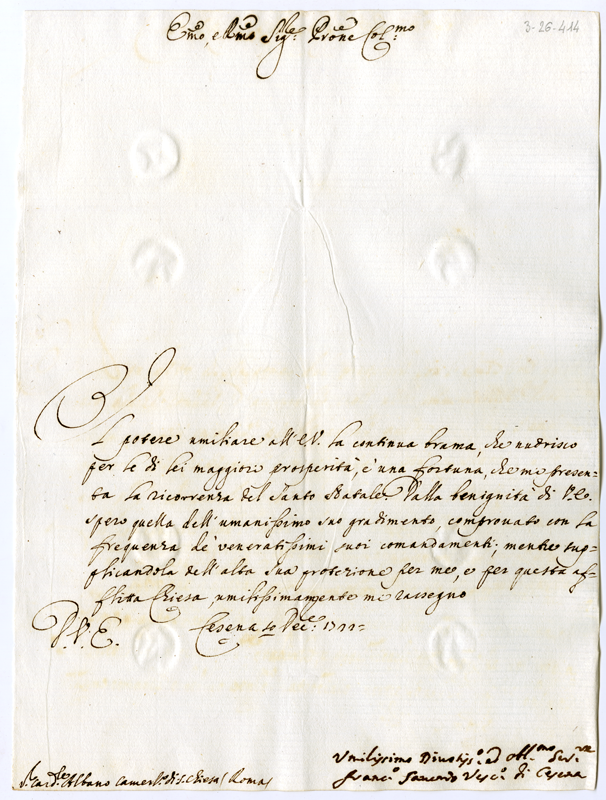 3-26-414
Emo, e Rmo Sig.re Prone Col.mo
Il potere umiliare all'E.V. la continua brama, che nudrisco
per le di lei maggiori prosperità, è una fortuna, che mi presen-
ta la ricorrenza del Santo Natale. Dalla benignità di V.E.
spero quella dell'umanissimo suo gradimento, comprovato con la
frequenza de' veneratissimi suoi comandamenti; mentre sup-
plicandola dell'alta sua protezione per me, e per questa af-
flitta Chiesa, umilissimamente mi rassegno
D.V.E. Cesena Dec.e
Umilissimo Divotis.o ed Obl.mo Ser.re
Franc.o Vesc.o di Cesena
S.r Card.le Albano Camerl.o di S. Chiesa (Roma)